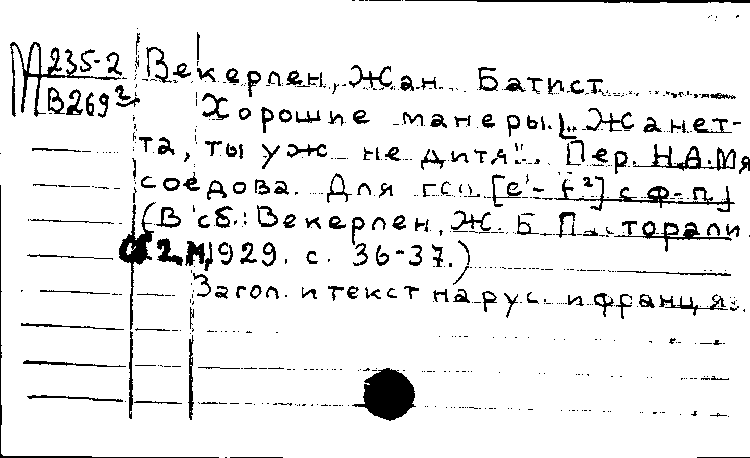 М 235-2 Векерлен, Жан Батист
В269² Хорошие манеры. ["Жанет-
та, ты уж не дитя". Пер. Н.А.Мя
соедова. Для гол. [e'- f²] с ф-п.]
(В сб.: Векерлен, Ж. Б. Пасторали.
Сб 2. М, 1929. с. 36-37.)
Загол. и текст на рус. и франц. яз.